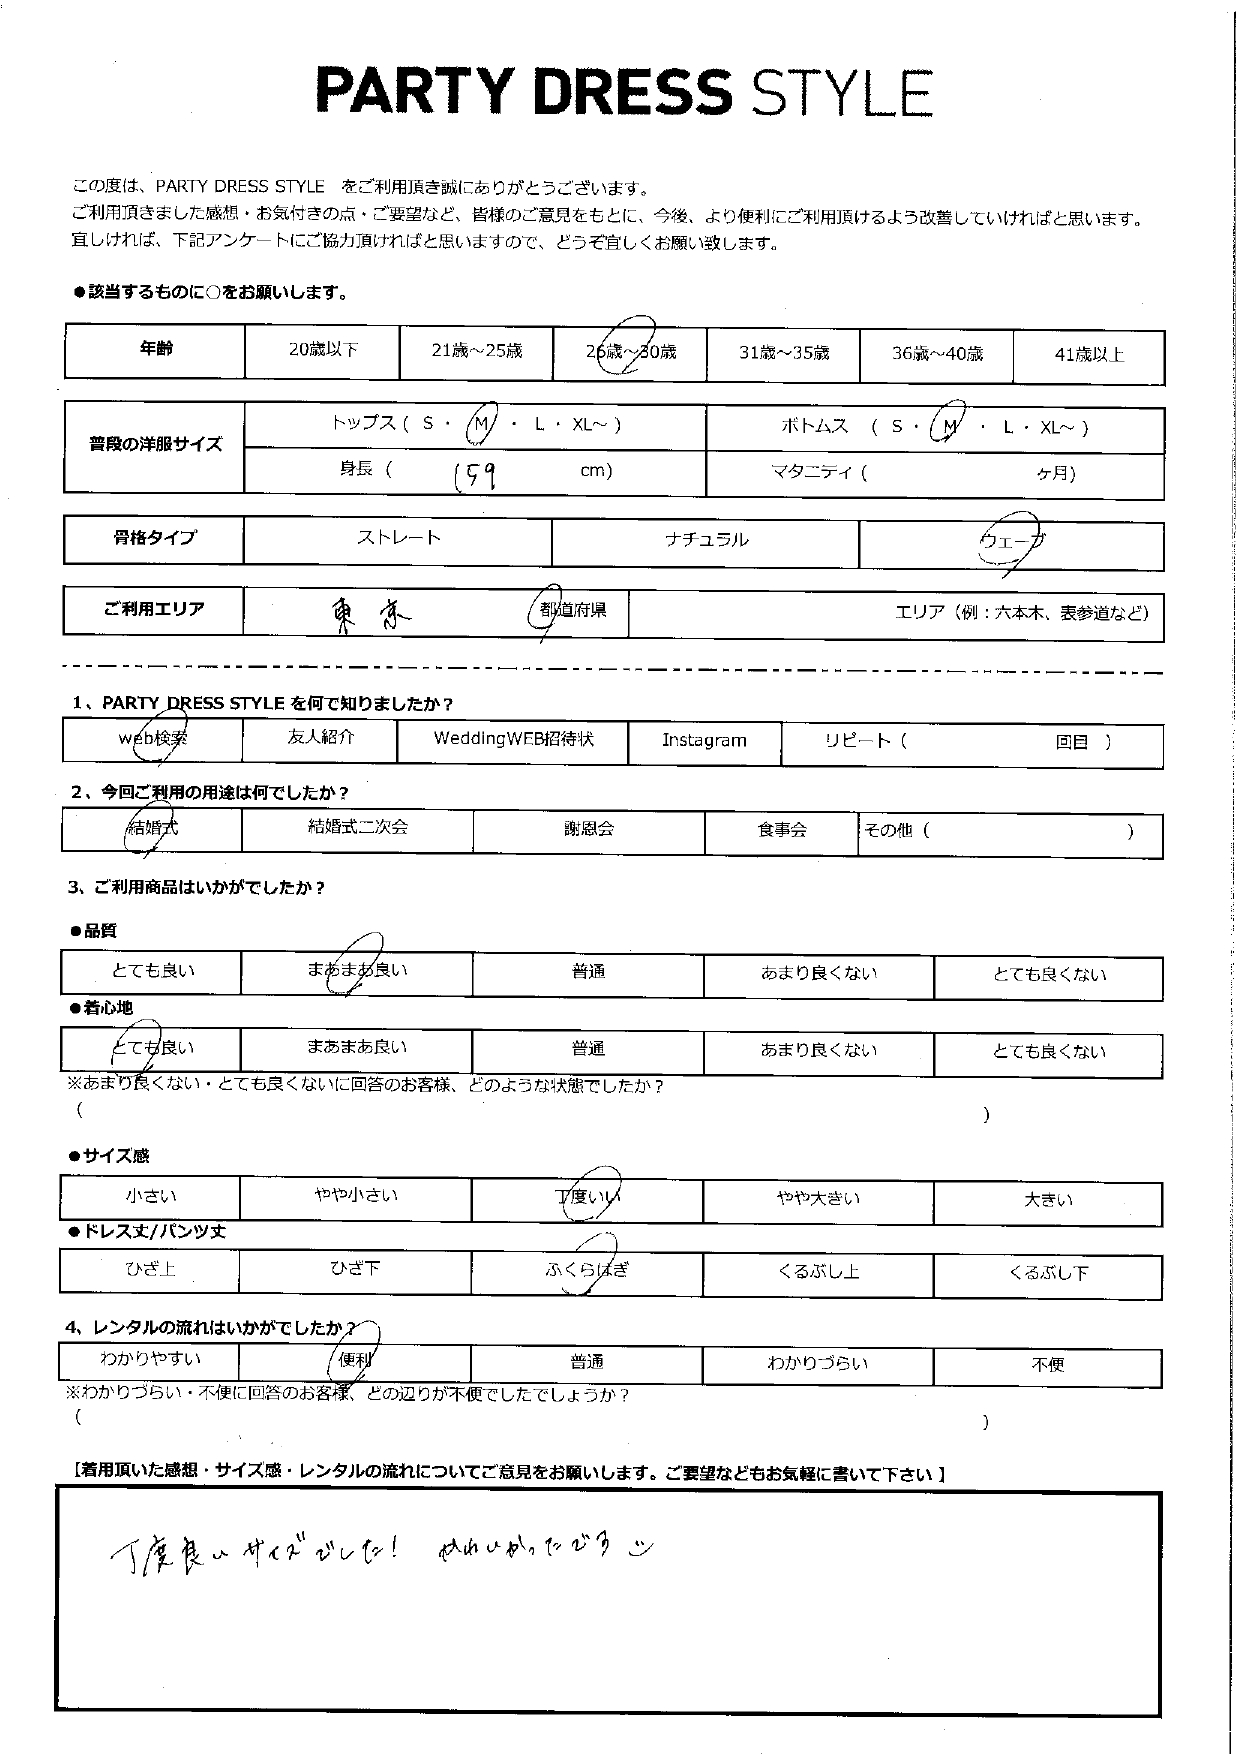 PARTY DRESS STYLE
この度は、PARTY DRESS STYLE をご利用頂き誠にありがとうございます。
ご利用頂きました感想・お気付きの点・ご要望など、皆様のご意見をもとに、今後、より便利にご利用頂けるよう改善していければと思います。
宜しければ、下記アンケートにご協力頂ければと思いますので、どうぞ宜しくお願い致します。
●該当するものに○をお願いします。
年齢 20歳以下 21歳～25歳 26歳～30歳 31歳～35歳 36歳～40歳 41歳以上
普段の洋服サイズ トップス ( S ・ M ・ L ・ XL～ ) ボトムス ( S ・ M ・ L ・ XL～ )
身長 ( 159 cm) マタニティ ( ヶ月)
骨格タイプ ストレート ナチュラル ウェーブ
ご利用エリア 東京 都道府県 エリア（例：六本木、表参道など）
1、PARTY DRESS STYLE を何で知りましたか？
web検索 友人紹介 WeddingWEB招待状 Instagram リピート ( 回目 )
2、今回ご利用の用途は何でしたか？
結婚式 結婚式二次会 謝恩会 食事会 その他 ( )
3、ご利用商品はいかがでしたか？
●品質
とても良い まあまあ良い 普通 あまり良くない とても良くない
●着心地
とても良い まあまあ良い 普通 あまり良くない とても良くない
※あまり良くない・とても良くないに回答のお客様、どのような状態でしたか？
( )
●サイズ感
小さい やや小さい 丁度いい やや大きい 大きい
●ドレス丈/パンツ丈
ひざ上 ひざ下 ふくらはぎ くるぶし上 くるぶし下
4、レンタルの流れはいかがでしたか？
わかりやすい 便利 普通 わかりづらい 不便
※わかりづらい・不便に回答のお客様、どの辺りが不便でしたでしょうか？
( )
【着用頂いた感想・サイズ感・レンタルの流れについてご意見をお願いします。ご要望などもお気軽に書いて下さい】
丁度良いサイズでした! かわいかったです